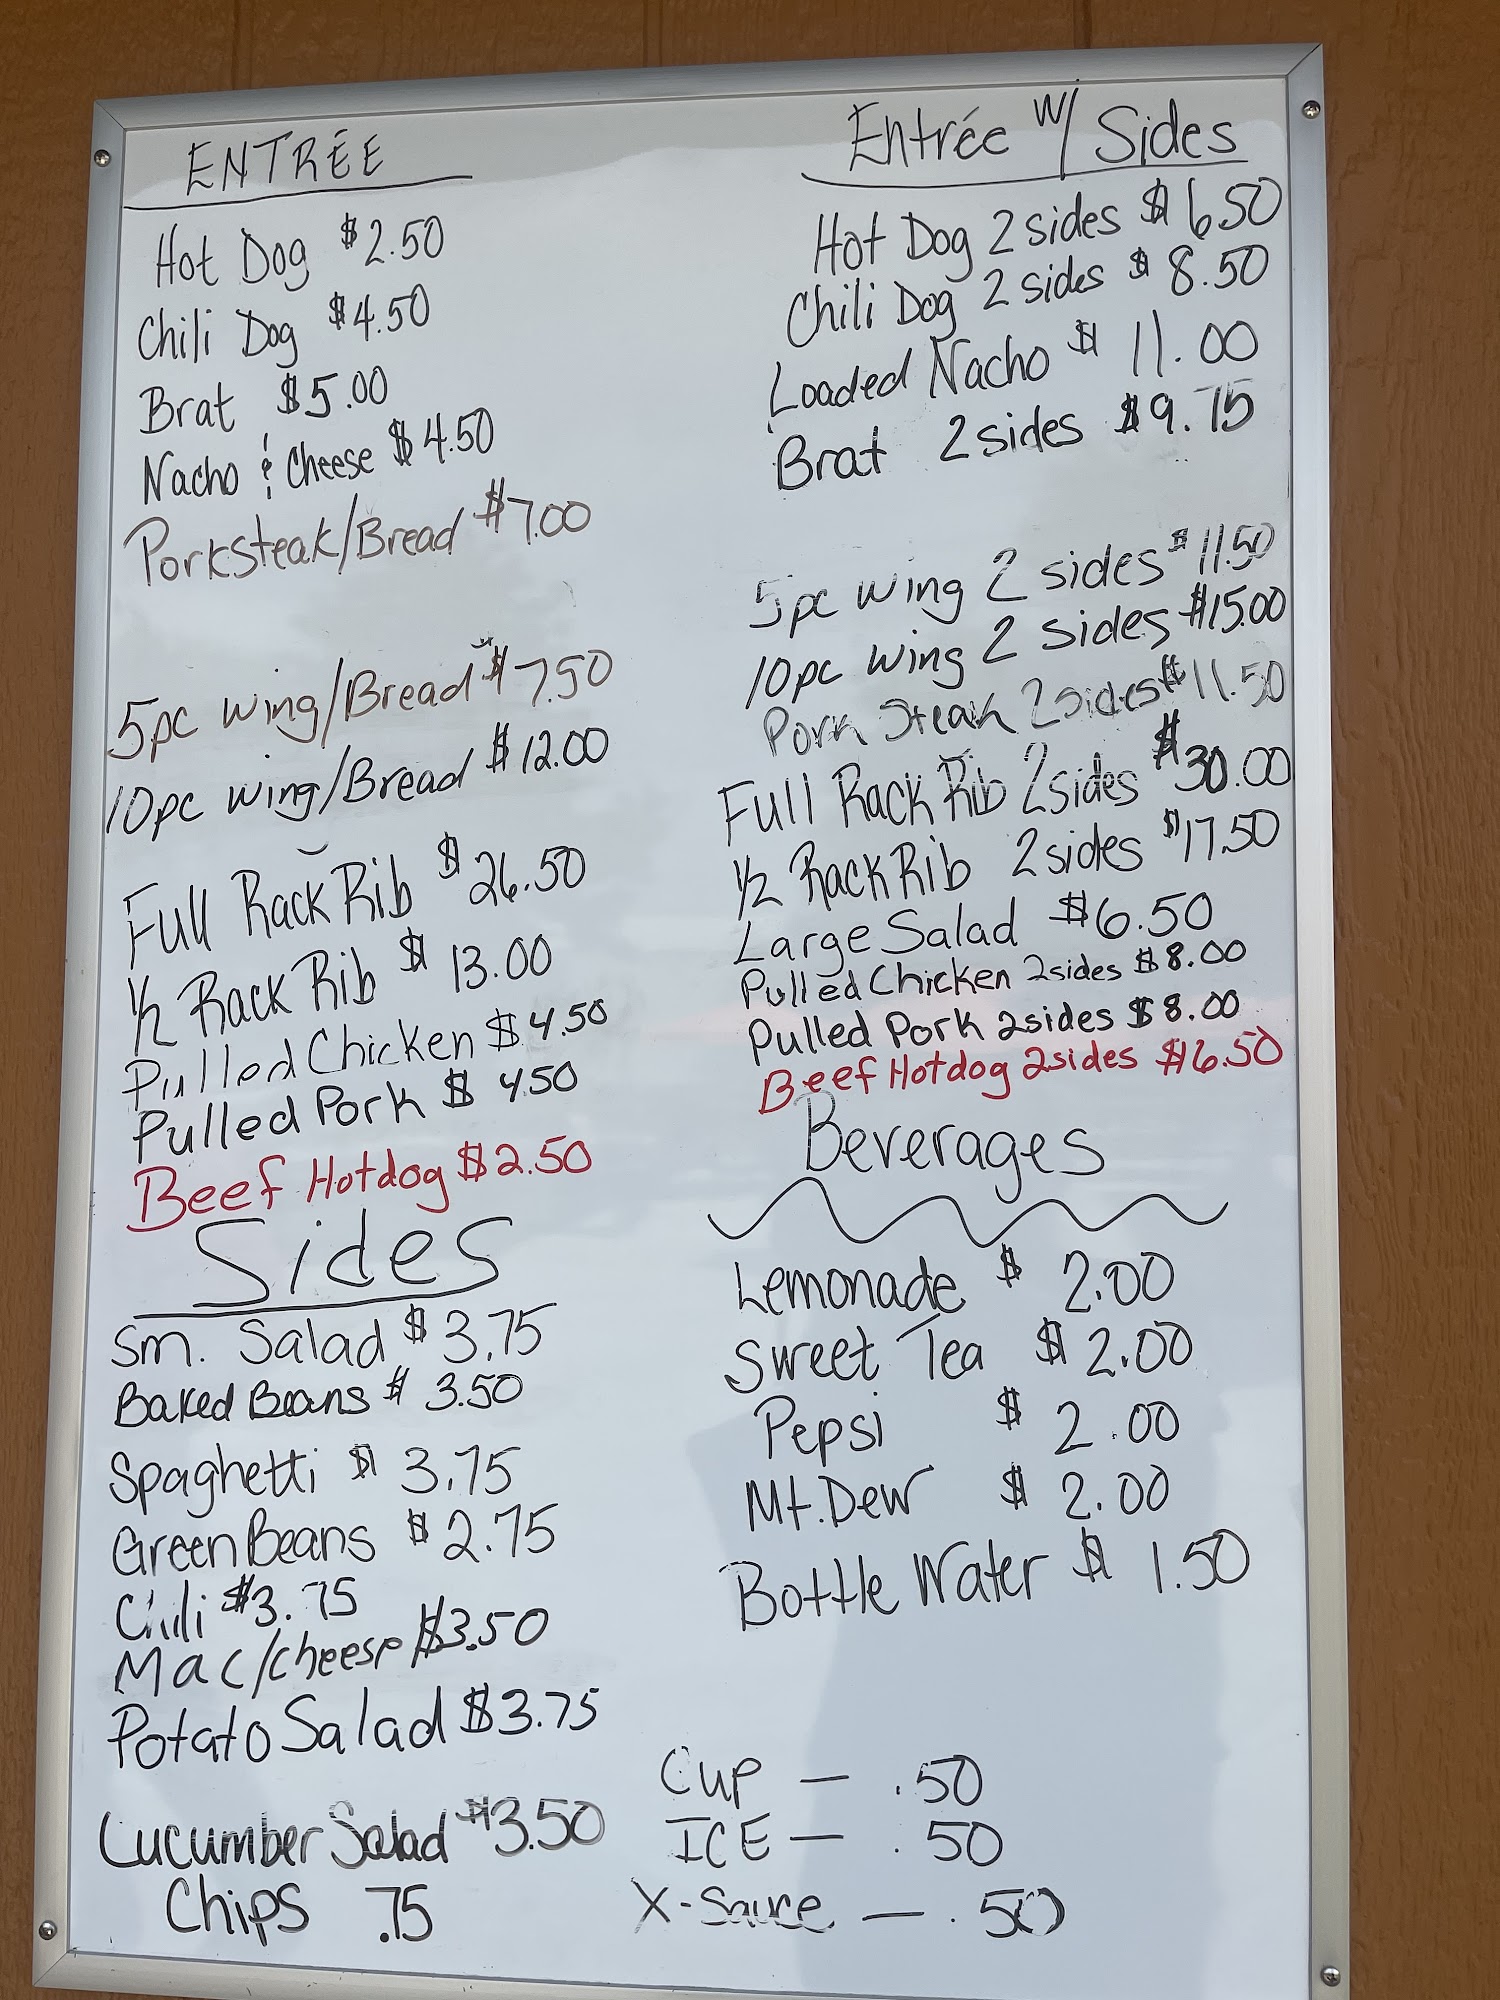 ENTRÉE
Hot Dog $2.50
Chili Dog $4.50
Brat $5.00
Nacho & Cheese $4.50
Porksteak/Bread $7.00
5pc wing/Bread $7.50
10pc wing/Bread $12.00
Full Rack Rib $26.50
1/2 Rack Rib $13.00
Pulled Chicken $4.50
Pulled Pork $4.50
Beef Hotdog $2.50
Sides
Sm. Salad $3.75
Baked Beans $3.50
Spaghetti $3.75
Green Beans $2.75
Chili $3.75
Mac/cheese $3.50
Potato Salad $3.75
Cucumber Salad $3.50
Chips .75
Entrée w/ Sides
Hot Dog 2 sides $6.50
Chili Dog 2 sides $8.50
Loaded Nacho $11.00
Brat 2 sides $9.75
5pc wing 2 sides $11.50
10pc wing 2 sides $15.00
Pork Steak 2 sides $11.50
Full Rack Rib 2 sides $30.00
1/2 Rack Rib 2 sides $17.50
Large Salad $6.50
Pulled Chicken 2 sides $8.00
Pulled Pork 2 sides $8.00
Beef Hotdog 2 sides $6.50
Beverages
Lemonade $2.00
Sweet Tea $2.00
Pepsi $2.00
Mt. Dew $2.00
Bottle Water $1.50
Cup — .50
ICE — .50
X-Sauce — .50